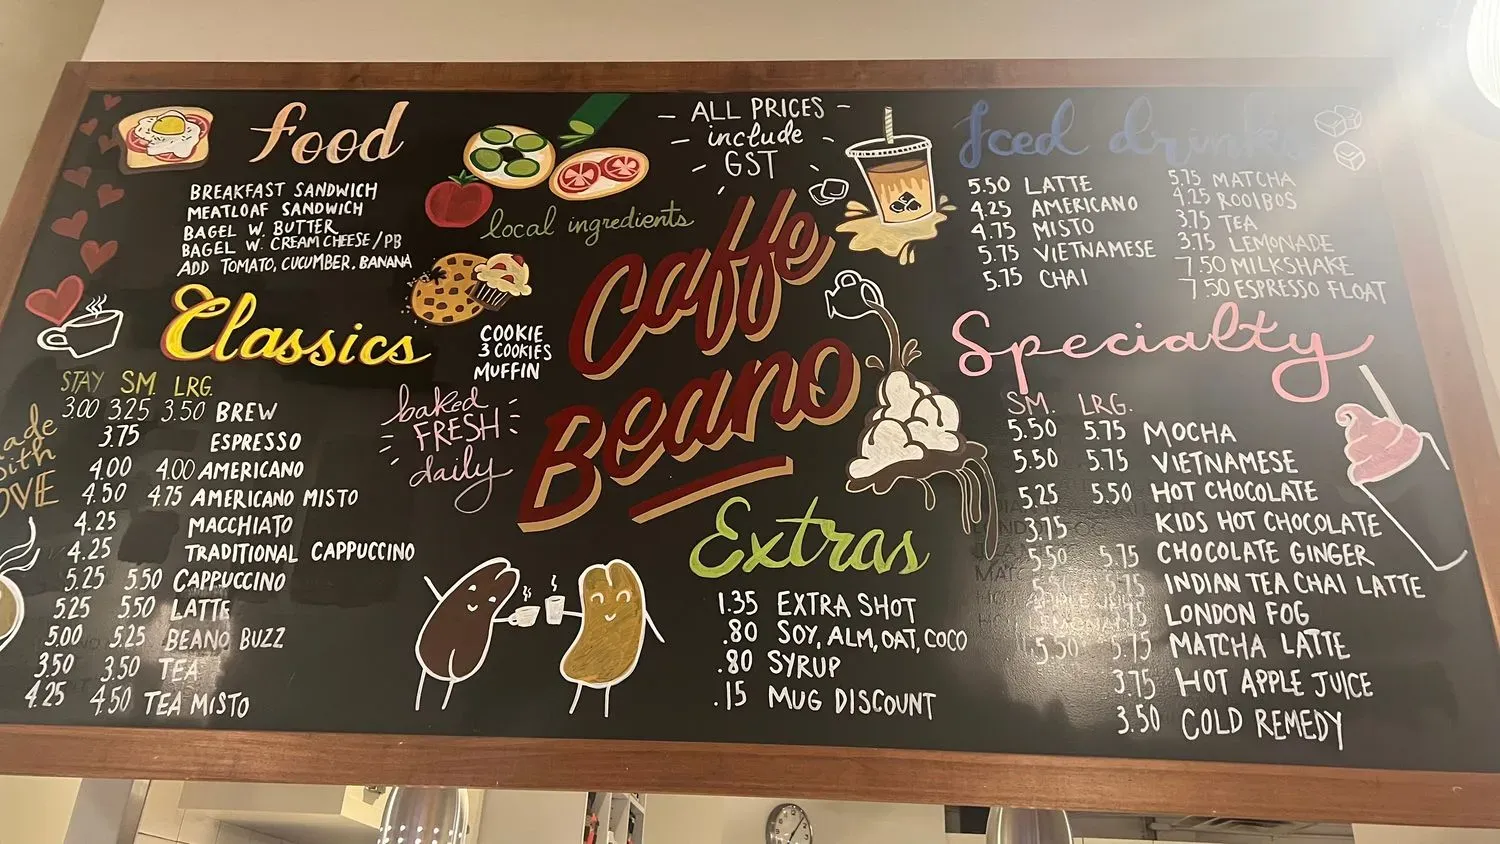 food
BREAKFAST SANDWICH
MEATLOAF SANDWICH
BAGEL W. BUTTER
BAGEL W. CREAM CHEESE/PB
ADD TOMATO, CUCUMBER, BANANA
local ingredients
- ALL PRICES -
- include -
- GST -
Caffe
Beano
COOKIE
3 COOKIES
MUFFIN
baked
FRESH
daily
Classics
STAY SM. LRG.
3.00 3.25 3.50 BREW
3.75 ESPRESSO
4.00 4.00 AMERICANO
4.50 4.75 AMERICANO MISTO
4.25 MACCHIATO
4.25 TRADITIONAL CAPPUCCINO
5.25 5.50 CAPPUCCINO
5.25 5.50 LATTE
5.00 5.25 BEANO BUZZ
3.50 3.50 TEA
4.25 4.50 TEA MISTO
Extras
1.35 EXTRA SHOT
.80 SOY, ALM, OAT, COCO
.80 SYRUP
.15 MUG DISCOUNT
Iced drinks
5.50 LATTE
4.25 AMERICANO
4.75 MISTO
5.75 VIETNAMESE
5.75 CHAI
5.75 MATCHA
4.25 ROOIBOS
3.75 TEA
3.75 LEMONADE
7.50 MILKSHAKE
7.50 ESPRESSO FLOAT
Specialty
SM. LRG.
5.50 5.75 MOCHA
5.50 5.75 VIETNAMESE
5.25 5.50 HOT CHOCOLATE
3.75 KIDS HOT CHOCOLATE
5.50 5.75 CHOCOLATE GINGER
INDIAN TEA CHAI LATTE
LONDON FOG
5.50 5.75 MATCHA LATTE
3.75 HOT APPLE JUICE
3.50 COLD REMEDY